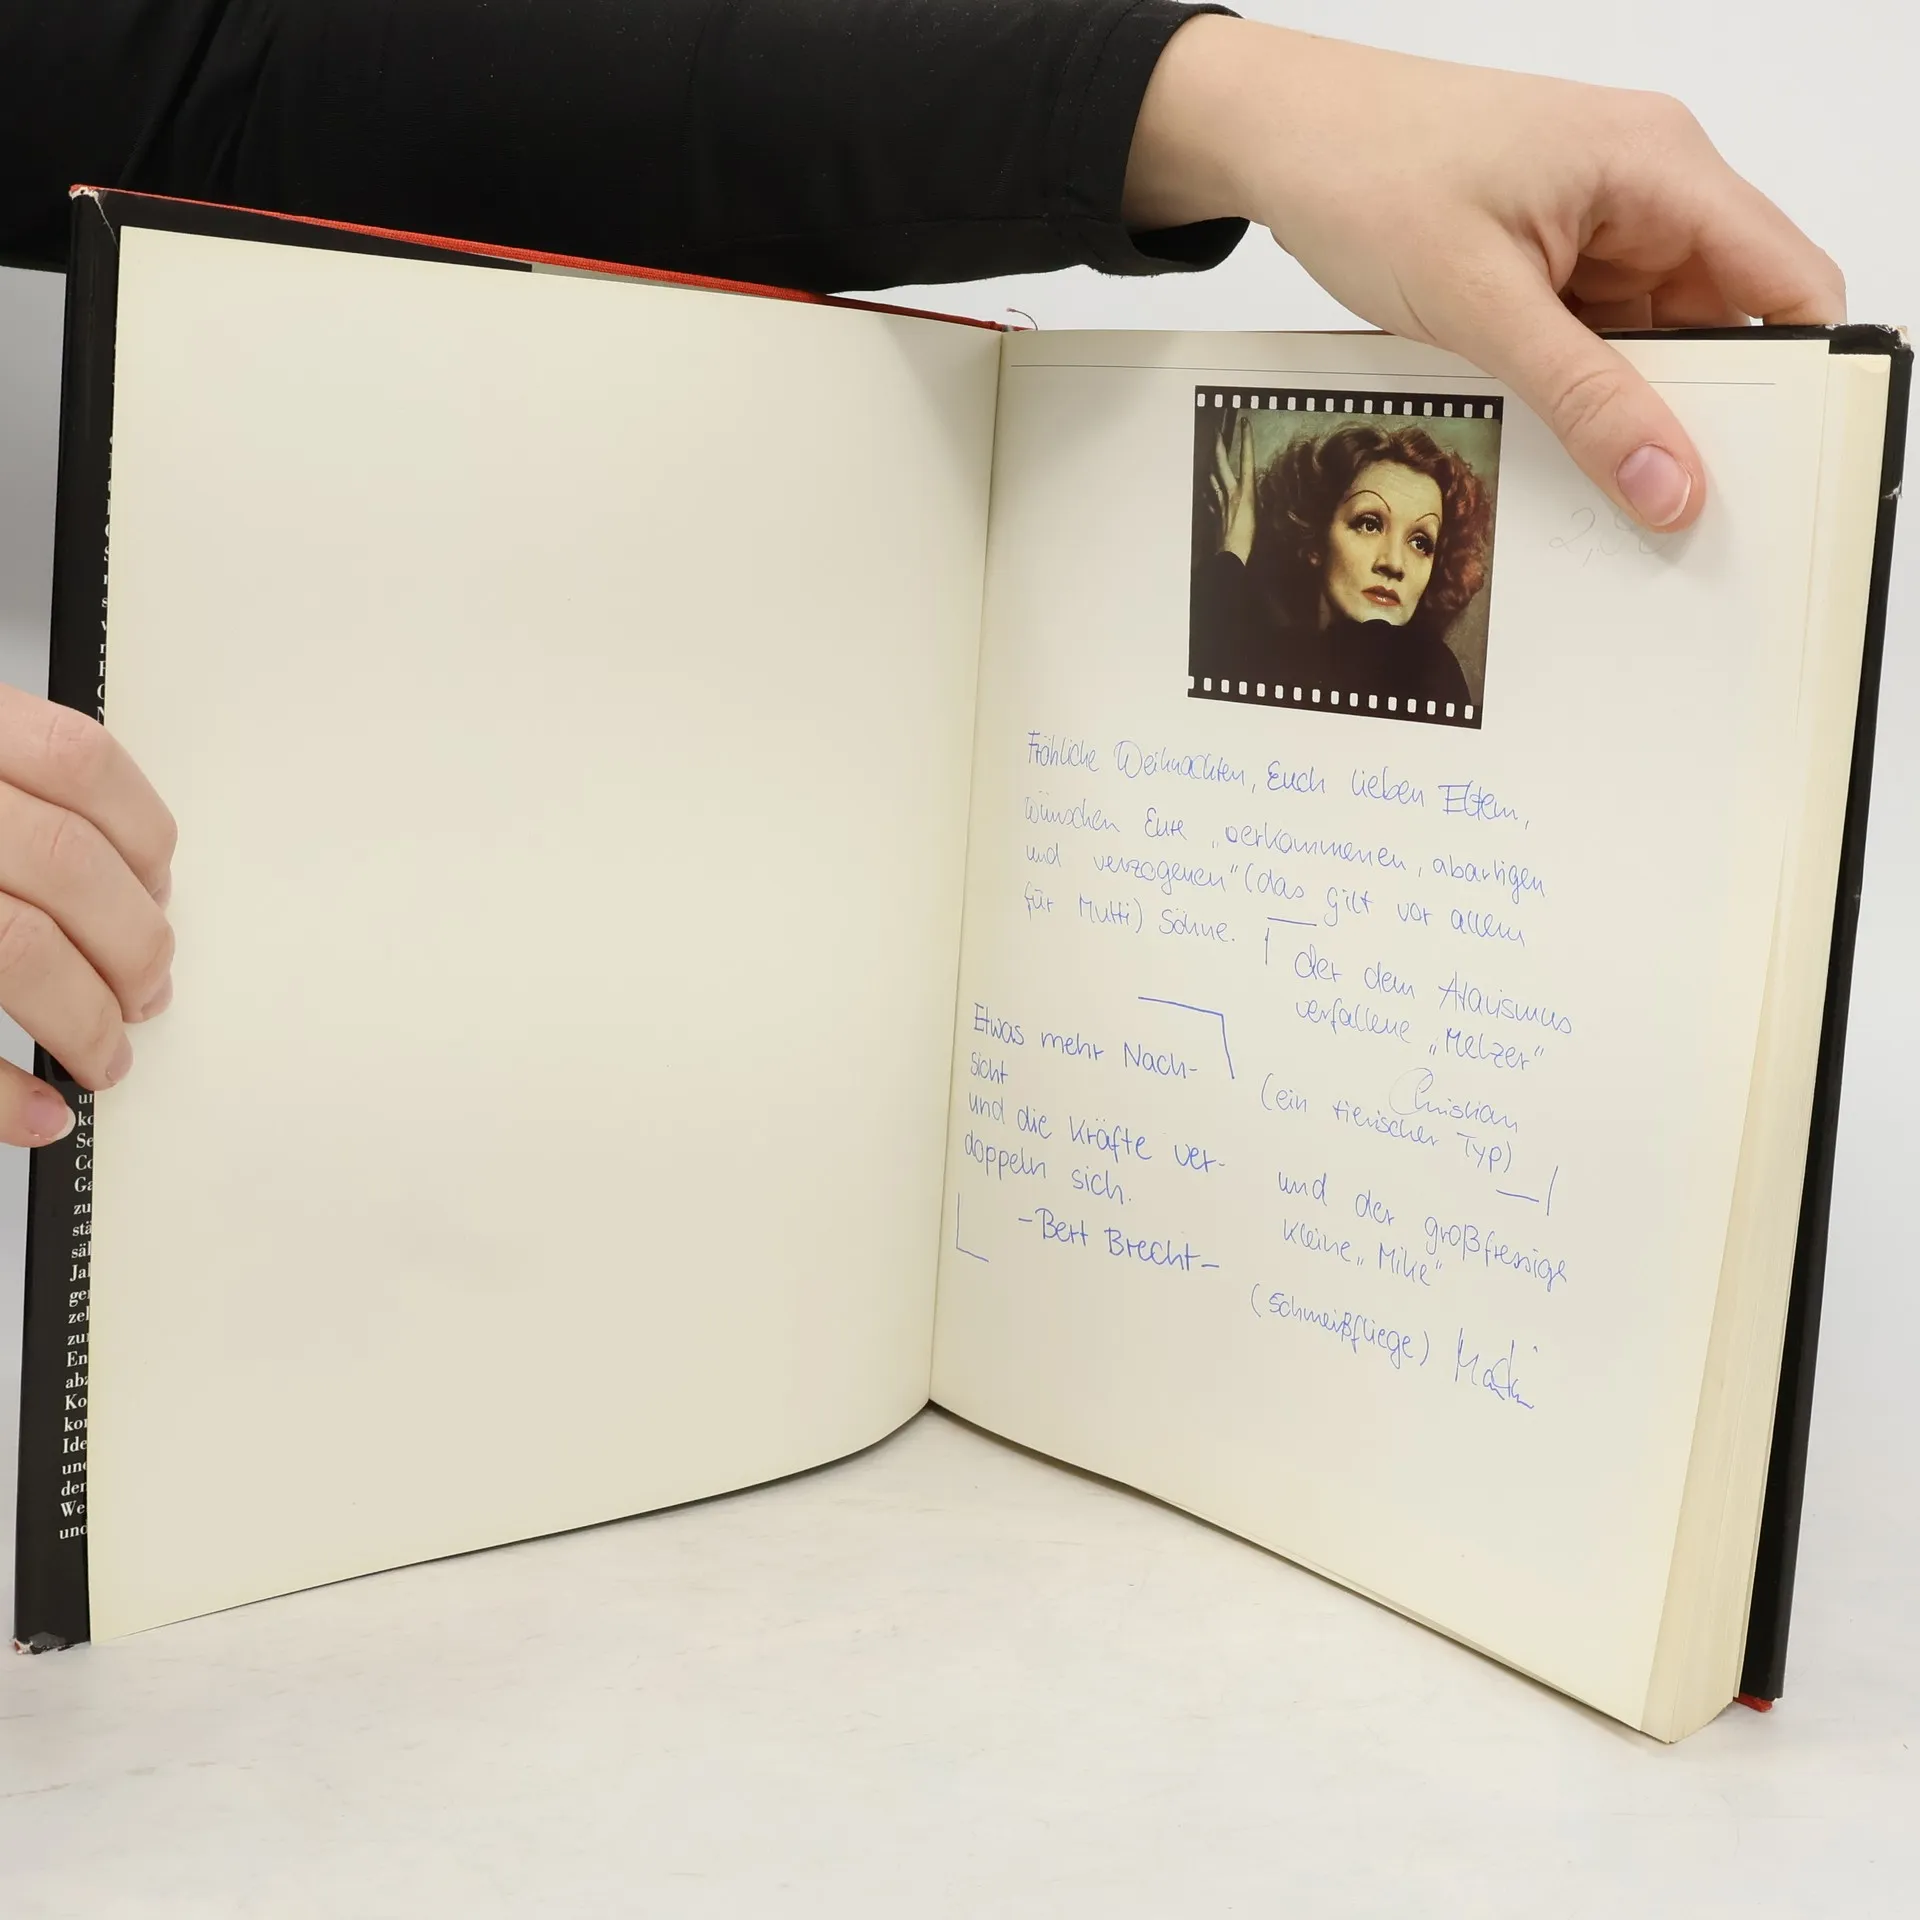 un
ko
Se
Co
Ga
zu
stä
säl
Jal
ger
zel
zur
En
abz
Ko
kor
Ide
und
der
We
und
2,
Fröhliche Weihnachten, Euch lieben Eltern,
wünschen Eure „verkommenen, abartigen
und verzogenen" (das gilt vor allem
für Mutti) Söhne.
der dem Atavismus
verfallene „Melzer"
Christian
(ein tierischer Typ)
und der großfressige
kleine „Mike"
(Schmeißfliege) Martin
Etwas mehr Nach-
sicht
und die Kräfte ver-
doppeln sich.
-Bert Brecht-